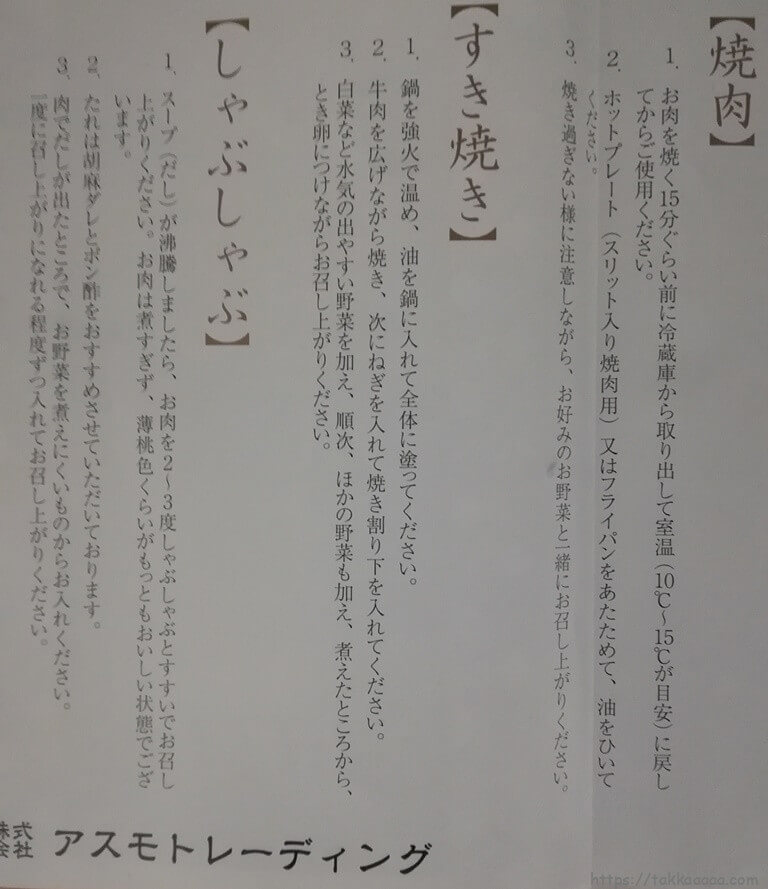 【焼肉】
1. お肉を焼く15分ぐらい前に冷蔵庫から取り出して室温（10℃～15℃が目安）に戻し
てからご使用ください。
2. ホットプレート（スリット入り焼肉用）又はフライパンをあたためて、油をひいて
ください。
3. 焼き過ぎない様に注意しながら、お好みのお野菜と一緒にお召し上がりください。
【すき焼き】
1. 鍋を強火で温め、油を鍋に入れて全体に塗ってください。
2. 牛肉を広げながら焼き、次にねぎを入れて焼き割り下を入れてください。
3. 白菜など水気の出やすい野菜を加え、順次、ほかの野菜も加え、煮えたところから、
とき卵につけながらお召し上がりください。
【しゃぶしゃぶ】
1. スープ（だし）が沸騰しましたら、お肉を2～3度しゃぶしゃぶとすすいでお召し
上がりください。お肉は煮すぎず、薄桃色くらいがもっともおいしい状態でござ
います。
2. たれは胡麻ダレとポン酢をおすすめさせていただいております。
3. 肉でだしが出たところで、お野菜を煮えにくいものからお入れください。
一度に召し上がりになれる程度ずつ入れてお召し上がりください。
株式会社 アスモトレーディング
https://takkaaaaa.com